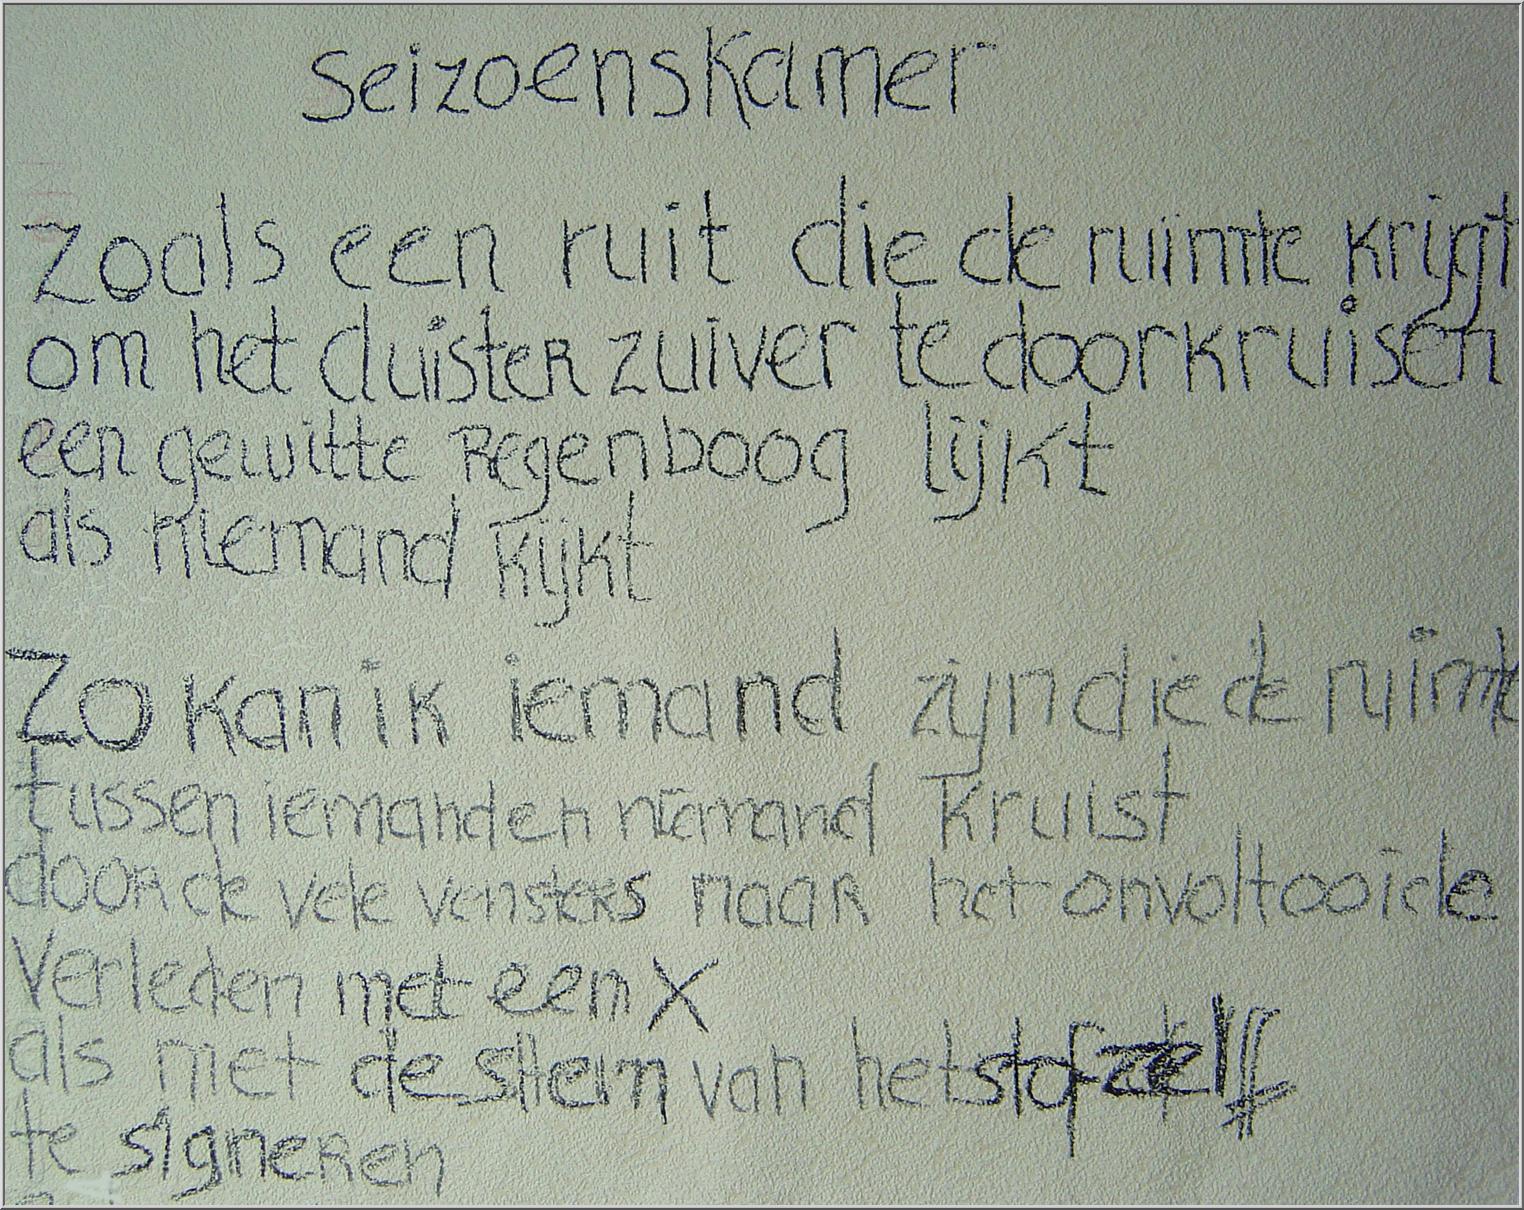 Seizoenskamer
Zoals een ruit die de ruimte krijgt
om het duister zuiver te doorkruisen
een gewitte Regenboog lijkt
als niemand kijkt
Zo kan ik iemand zijn die de ruimte
tussen iemand en niemand kruist
door de vele vensters naar het onvoltooide
verleden met een X
als met de stem van het stof zelf
te signeren